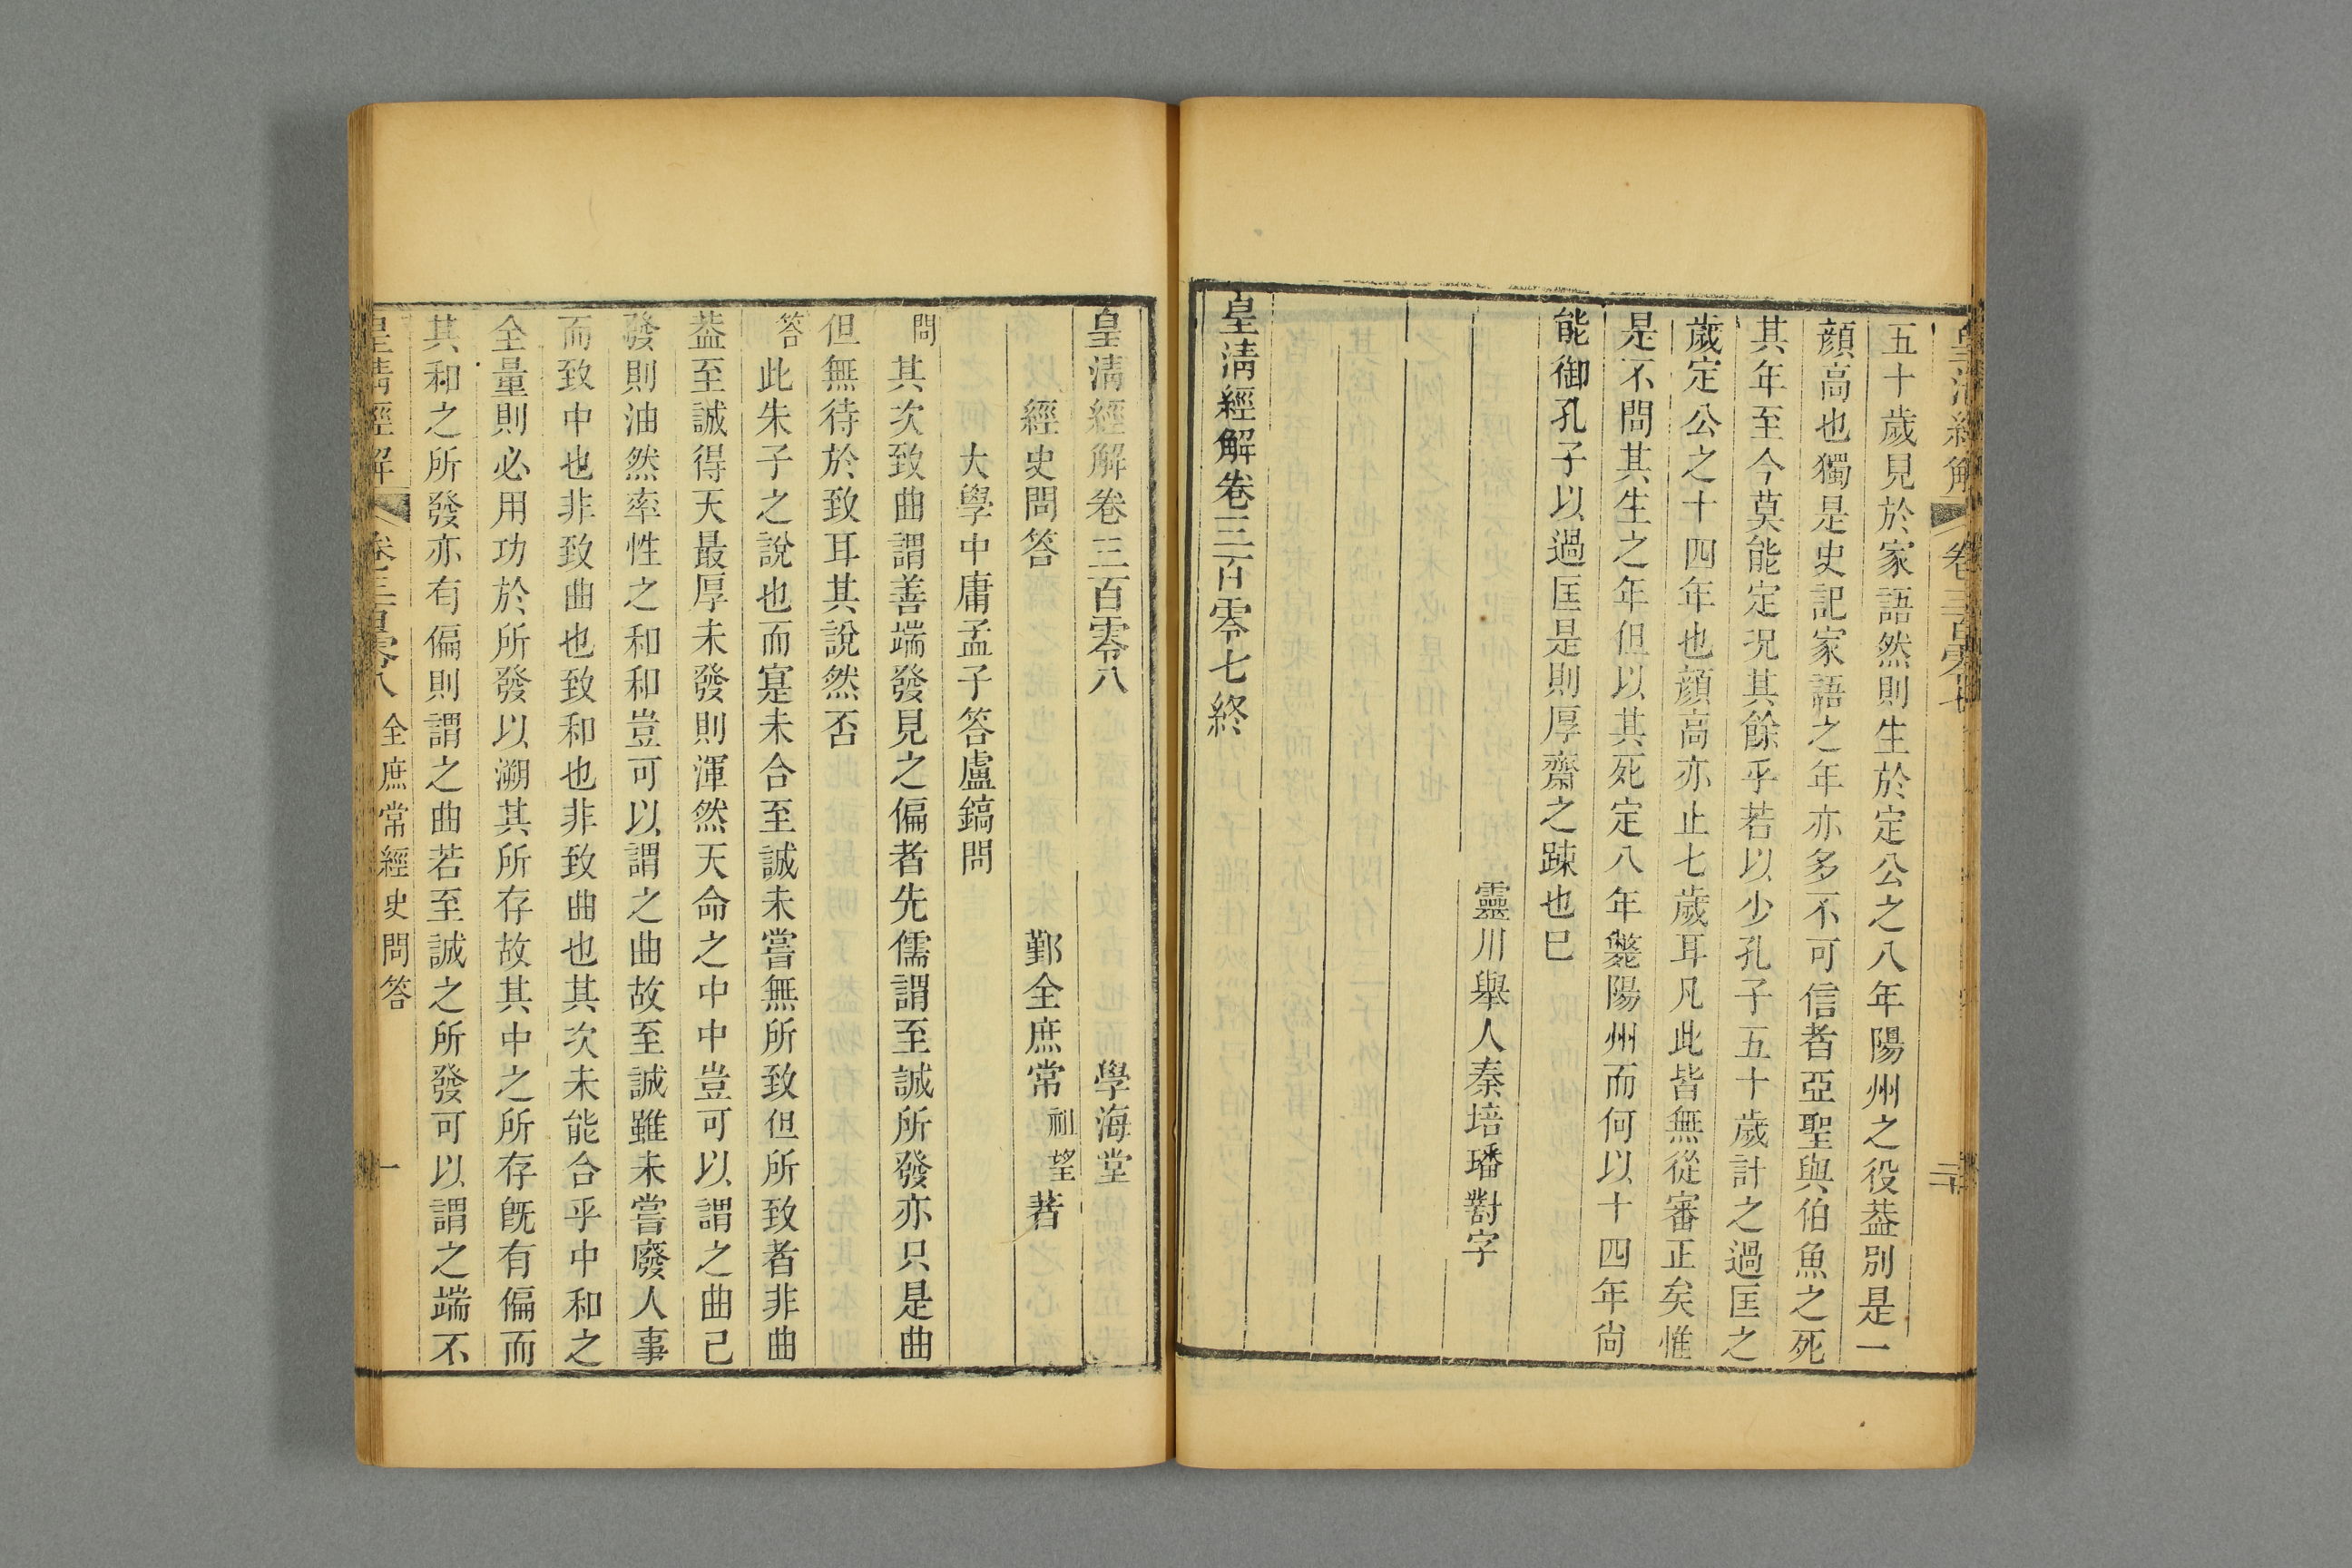 皇清經解 卷三百零七 二十
五十歲見於家語然則生於定公之八年陽州之役葢別是一
顏高也獨是史記家語之年亦多不可信者亞聖與伯魚之死
其年至今莫能定況其餘乎若以少孔子五十歲計之過匡之
歲定公之十四年也顏高亦止七歲耳凡此皆無從審正矣惟
是不問其生之年但以其死定八年斃陽州而何以十四年尙
能御孔子以過匡是則厚齋之踈也已
靈川舉人秦培璠對字
皇淸經解卷三百零七終
皇淸經解卷三百零八 學海堂
經史問答 鄞全庶常祖望著
大學中庸孟子答盧鎬問
問其次致曲謂善端發見之偏者先儒謂至誠所發亦只是曲
但無待於致耳其說然否
答此朱子之說也而寔未合至誠未嘗無所致但所致者非曲
葢至誠得天最厚未發則渾然天命之中中豈可以謂之曲已
發則油然率性之和和豈可以謂之曲故至誠雖未嘗廢人事
而致中也非致曲也致和也非致曲也其次未能合乎中和之
全量則必用功於所發以溯其所存故其中之所存旣有偏而
其和之所發亦有偏則謂之曲若至誠之所發可以謂之端不
皇淸經解 卷三百零八 全庶常經史問答 一